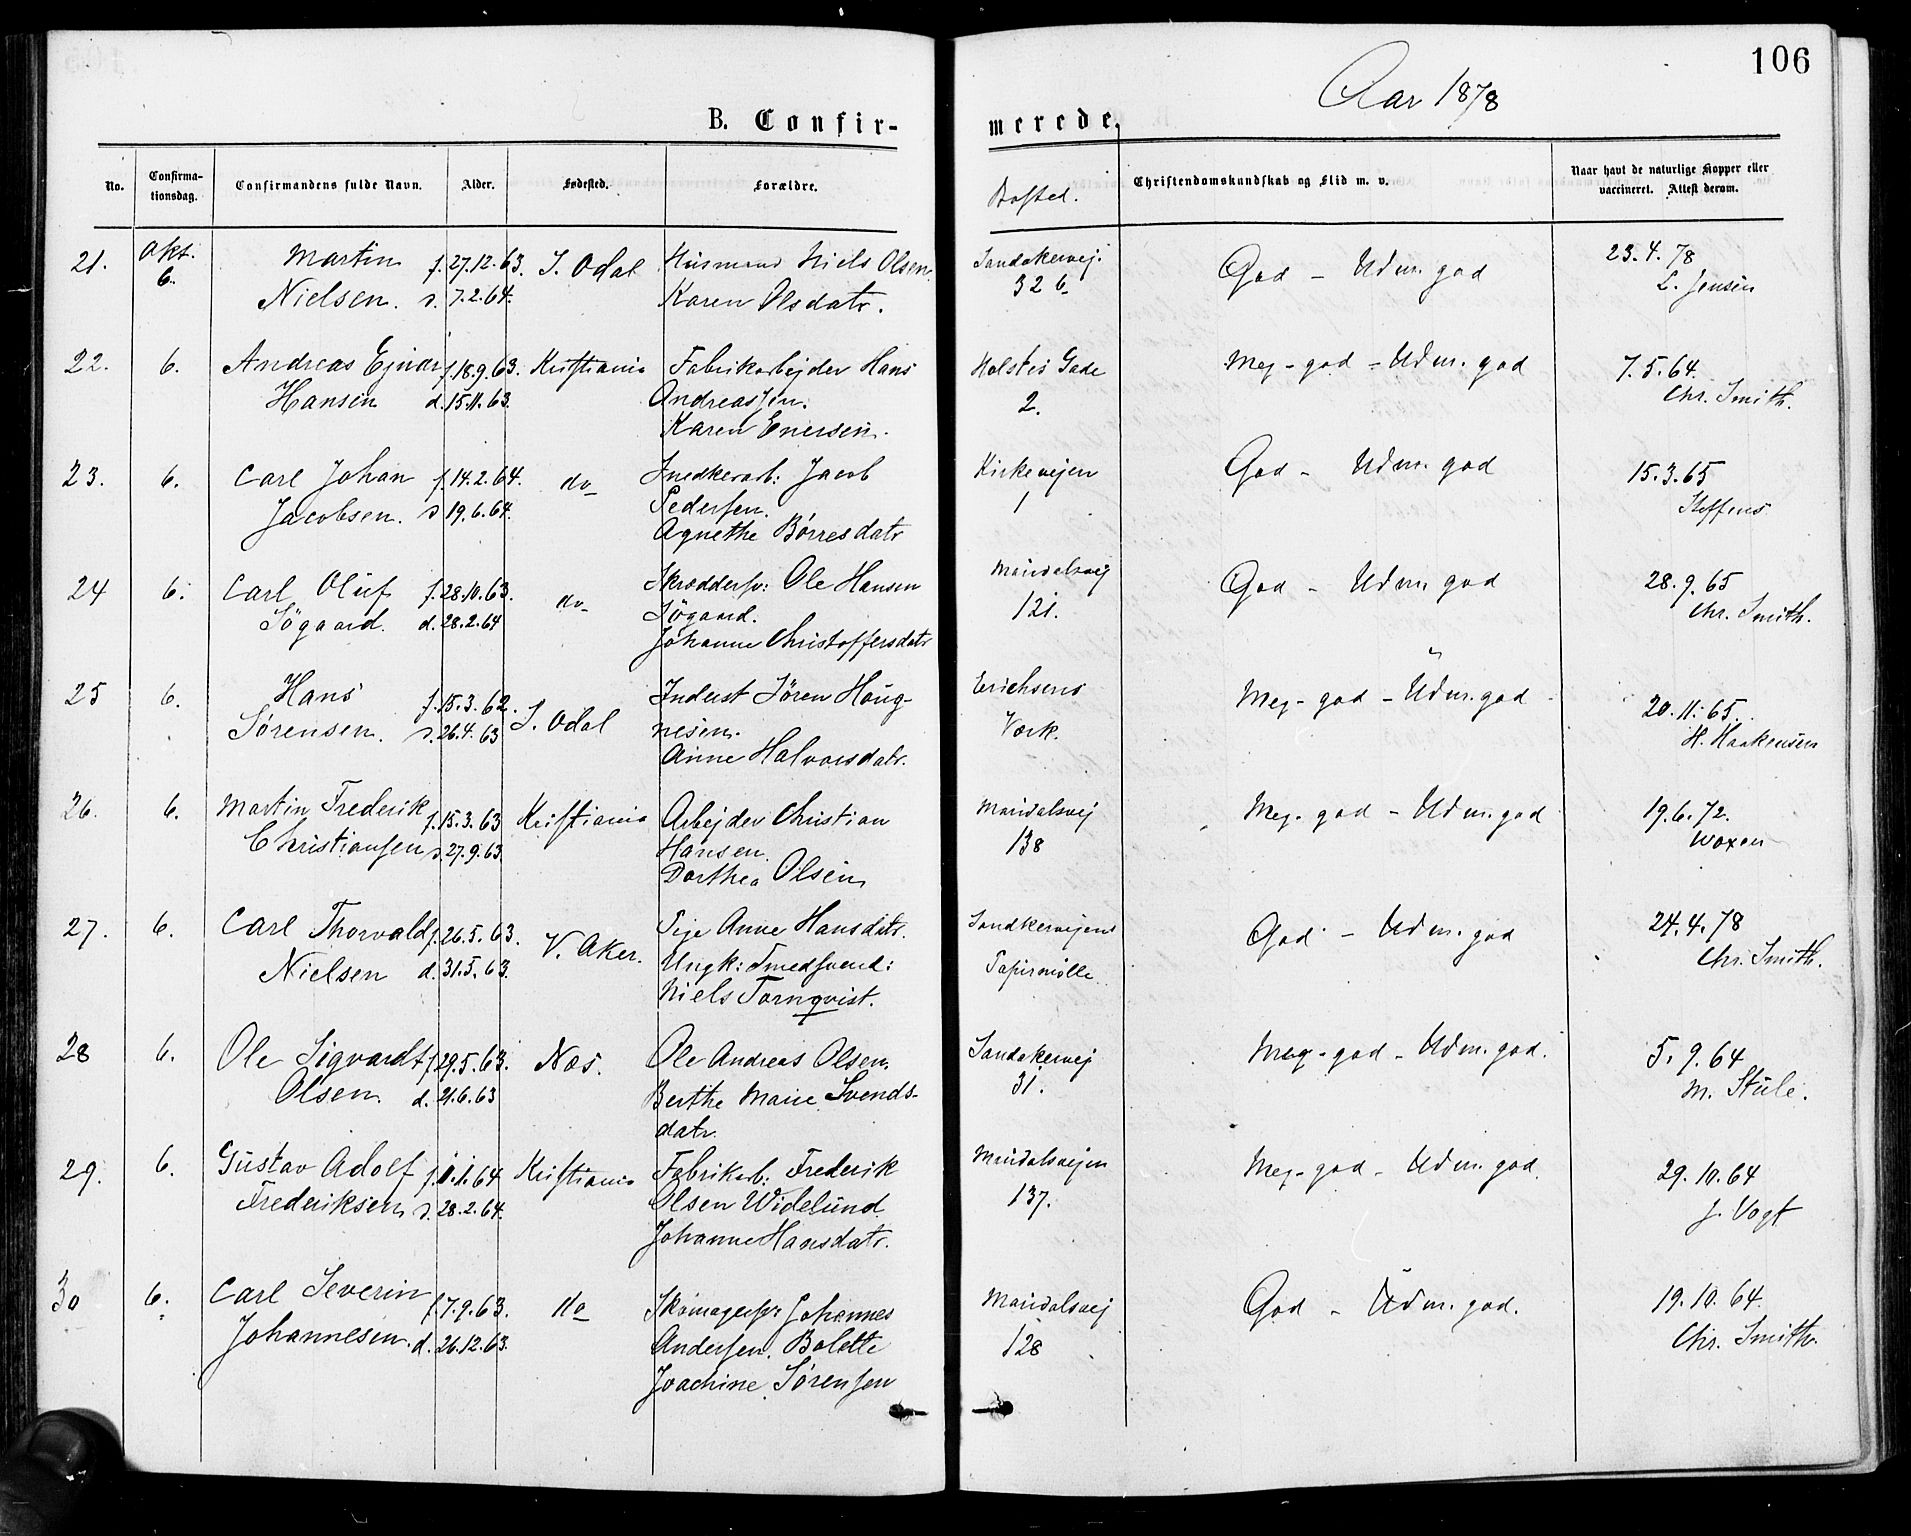 106
Aar 1878
B. Confir-
merede.
No.
Confirma-
tionsdag.
Confirmandens fulde Navn.
Alder.
Fødested.
Forældre.
Bosted.
Christendomskundskab og Flid m. v.
Naar havt de naturlige Kopper eller
vaccineret. Attest derom.
21. Okt. Martin f. 27.12.63. S. Odal Husmand Niels Olsen. Sandakervej. God - Udm. god 23.4.78
6. Nielsen. d. 7.2.64. Karen Olsdatr. 32 b L. Jensen
22. 6. Andreas Ejnar f. 18.9.63. Kristiania Fabrikarbejder Hans Holstes Gade Meg-god - Udm. god 7.5.64.
Hansen d. 15.11.63. Andreassen. 2. Chr. Smith.
Karen Enersen.
23. 6. Carl Johan f. 14.2.64. do Snedkerarb: Jacob Kirkevejen God - Udm. god 15.3.65
Jacobsen. d 19.6.64. Pedersen. 1 Steffens
Agnethe Børresdatr
24 6. Carl Oluf f. 28.10.63. do Skræddersv: Ole Hansen Maridalsvej God - Udm god 28.9.65
Søgaard. d. 28.2.64 Søgaard. 121. Chr. Smith.
Johanne Christoffersdatr
25 6. Hans f. 15.3.62. S. Odal Inderst Søren Haug- Erichsens Meg-god - Udm. god 20.11.65.
Sørensen. d. 26.4.63 nesen. Værk. H. Haakensen
Anne Halvorsdatr.
26. 6. Martin Frederik f. 15.3.63 Kristiania Arbejder Christian Maridalsvej Meg. god - Udm. god 19.6.72.
Christiansen d. 27.9.63. Hansen. 138 Woxen
Dorthea Olsen
27. 6. Carl Thorvald f. 26.5.63. V. Aker. Pige Anne Hansdatr. Sandkervejens God - Udm. god 24.4.78
Nielsen d. 31.5.63. Ungk: Smedsvend: Papirmølle. Chr. Smith.
Niels Tornqvist.
28 6. Ole Sigvardt f. 29.5.63. Næs. Ole Andreas Olsen. Sandakervej Meg-god - Udm. god. 5.9.64
Olsen. d. 21.6.63 Berthe Marie Svends- 31. M. Stüle.
datr.
29. 6. Gustav Adolf f. 1.1.64 Kristiania Fabrikarb: Frederik Maridalsvejen Meg-god - Udm. god. 29.10.64
Frederiksen d. 28.2.64. Olsen Widelund 137. J. Vogt
Johanne Hansdatr.
30 6. Carl Severin f. 7.9.63. do Skomagersv: Johannes Maridalsvej God - Udm. god. 19.10.64.
Johannesen. d. 26.12.63. Andersen. Bolette 128 Chr. Smith.
Joachine Sørensen